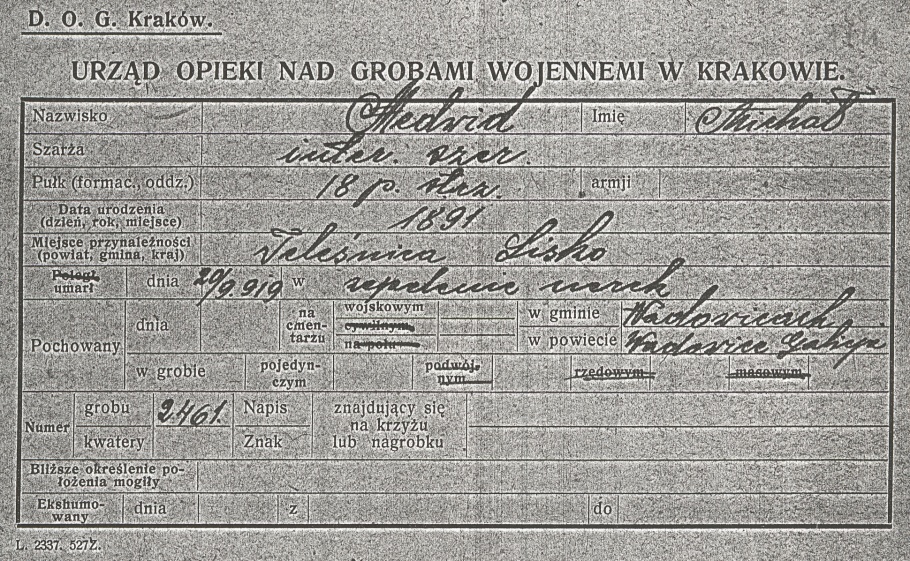 D. O. G. Kraków.
URZĄD OPIEKI NAD GROBAMI WOJENNEMI W KRAKOWIE.
Nazwisko Medwid Imię Michał
Szarża inter. szer.
Pułk (formac., oddz.) 18 p. armji
Data urodzenia
(dzień, rok, miejsce) 1891
Miejsce przynależności
(powiat, gmina, kraj) Teleśnica Lisko
Poległ
umarł dnia 20/9.919 w zapalenie nerek
Pochowany dnia na cmentarzu wojskowym
cywilnym
na polu
w gminie Wadowicach
w powiecie Wadowice Galicya
w grobie pojedynczym podwójnym rzędowym masowym
Numer grobu
kwatery 2461.
Napis
Znak
znajdujący się
na krzyżu
lub nagrobku
Bliższe określenie położenia mogiły
Ekshumowany dnia z do
L. 2337. 527Z.